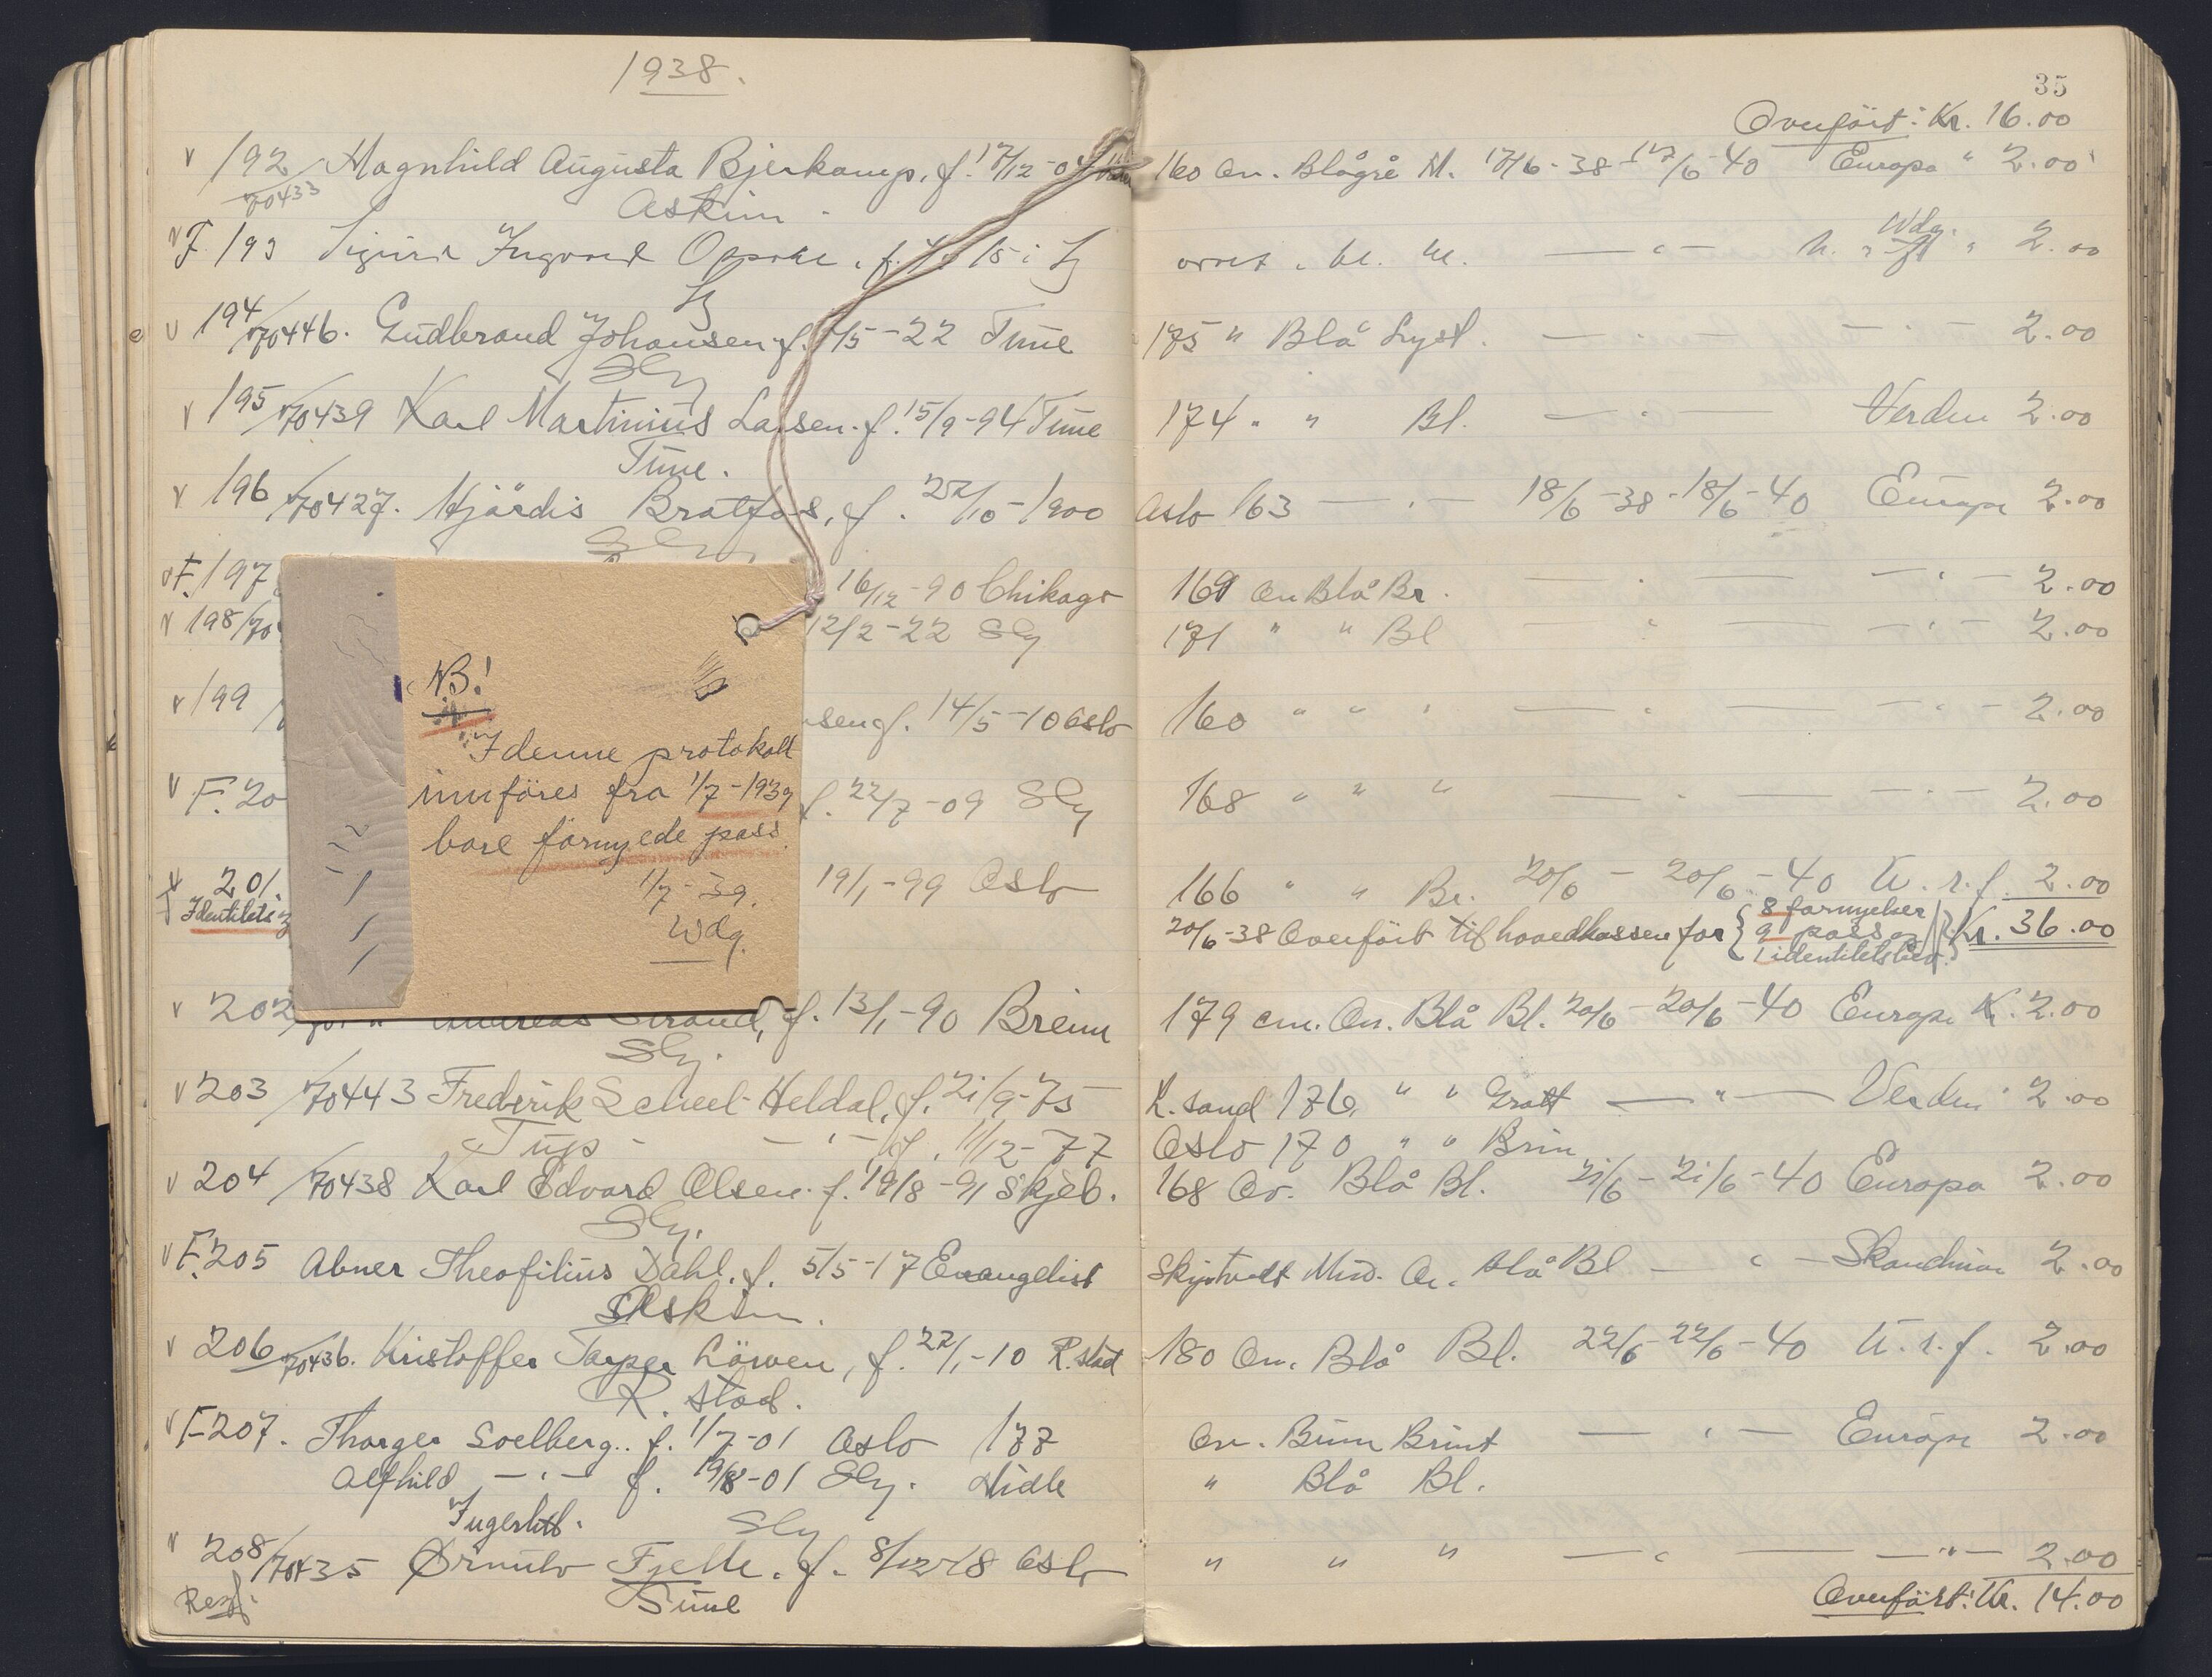 1938.
35
Overfört: Kr. 16.00
192 70433 Magnhild Augusta Bjerkamp, f. 17/12-04 160 Ov. Blågrå M. 17/6-38-17/6-40 Europa " 2.00
Askim
F. 193 Sigurd Ingvard f. 15 i M. Wdg. 2.00
194/70446. Gudbrand Johansen f. /5-22 Tune 175 " Blå Lyst. 2.00
Slg
195/70439 Karl Martinius Larsen. f. 15/9-94 Tune 174 " " Bl. Verden 2.00
Tune.
196/70427. Hjördis Bratfos, f. 22/10-1900 Oslo 163 18/6-38-18/6-40 Europa 2.00
F. 197 16/12-90 Chikago 169 Ov Blå Br. 2.00
198/70 12/2-22 Slg 171 " " Bl 2.00
199 sen f. 14/5-10 Oslo 160 " " " 2.00
F. 20 f. 22/7-09 Slg 168 " " " 2.00
201. 19/1-99 Oslo 166 " " Br. 20/6 - 20/6-40 U.r.f. 2.00
Identitets
20/6-38 Overfört til hovedkassen for { 8 fornyelser 9 pass og 1 identitetsbev. } Kr. 36.00
NB!
I denne protokoll
innföres fra 1/7-1939
bare fornyede pass.
1/7-39.
Wdg.
202 Andreas Strand, f. 13/1-90 Breim 179 cm. Ov. Blå Bl. 20/6-20/6-40 Europa K. 2.00
Slg.
203 /70443 Frederik Scheel Heldal, f. 21/9-75 K.sand 176 " " Grått — " — Verden " 2.00
— " — f. 11/12-77 Oslo 170 " " Brun
204 /70438 Karl Edvard Olsen. f. 19/8-91 Skjeb. 168 Ov. Blå Bl. 21/6-21/6-40 Europa 2.00
Slg.
F. 205 Abner Theofilius Dahl. f. 5/5-17 Evangelist Mid. Ov. blå Bl — " — 2.00
Askim.
206 70436. Kristoffer Løwen, f. 22/1-10 R.stad 180 Ov. Blå Bl. 22/6-22/6-40 U.r.f. 2.00
R. stad.
F 207. Thorger Soelberg.. f. 1/7-01 Oslo 177 Ov. Brun Brunt — " — Europa 2.00
Alfhild — " — f. 19/8-01 Slg. Midle " Blå Bl.
Slg
208/70435 Ørnulv Fjelle. f. 8/12-18 Oslo " " " — " — — " — 2.00
Tune
Overfört: Kr. 14.00